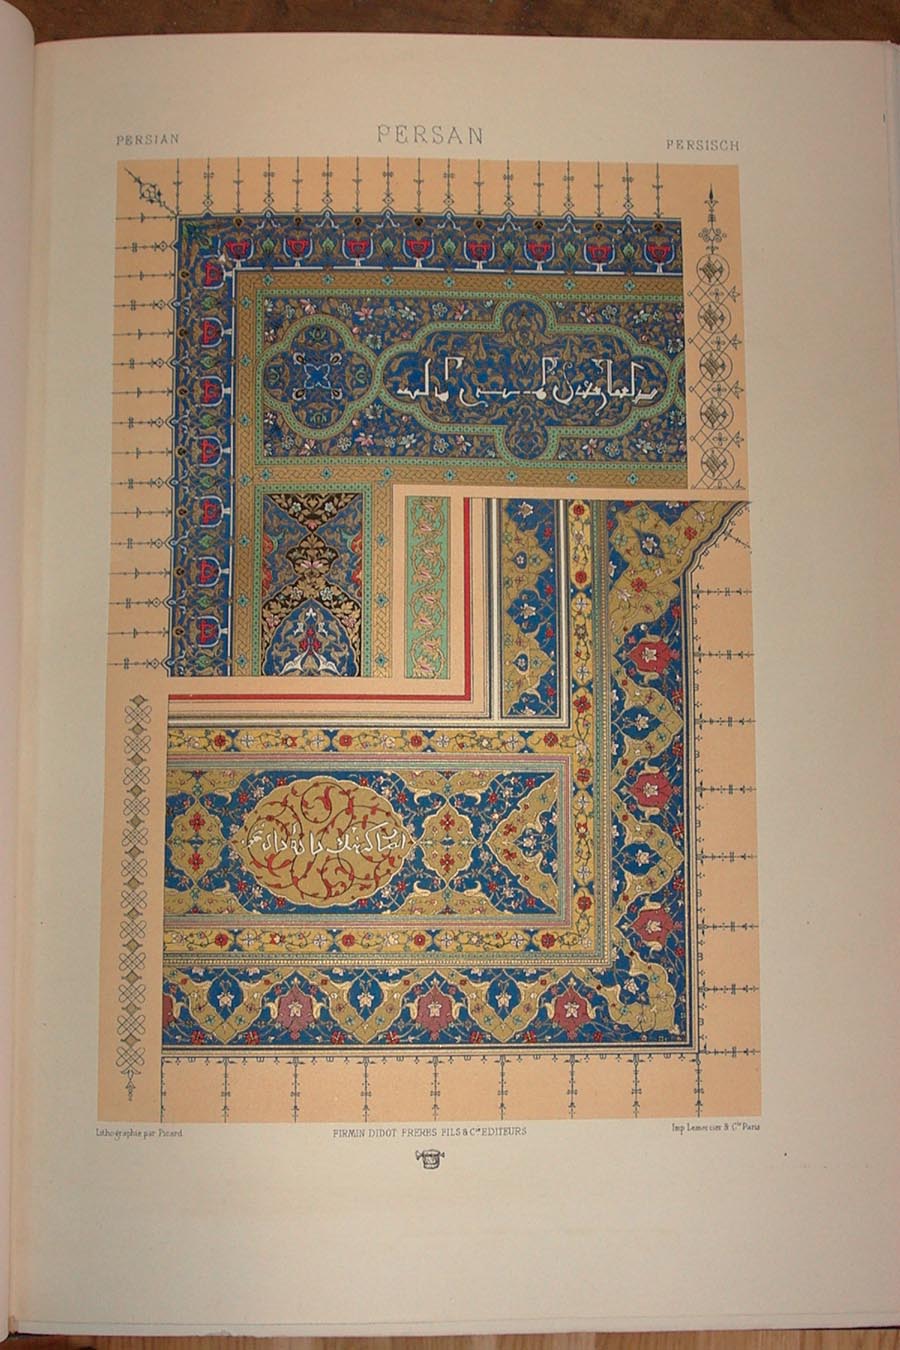 PERSIAN
PERSAN
PERSISCH
Lithographie par Picard
FIRMIN DIDOT FRERES FILS & Cie EDITEURS
Imp Lemercier & Cie Paris